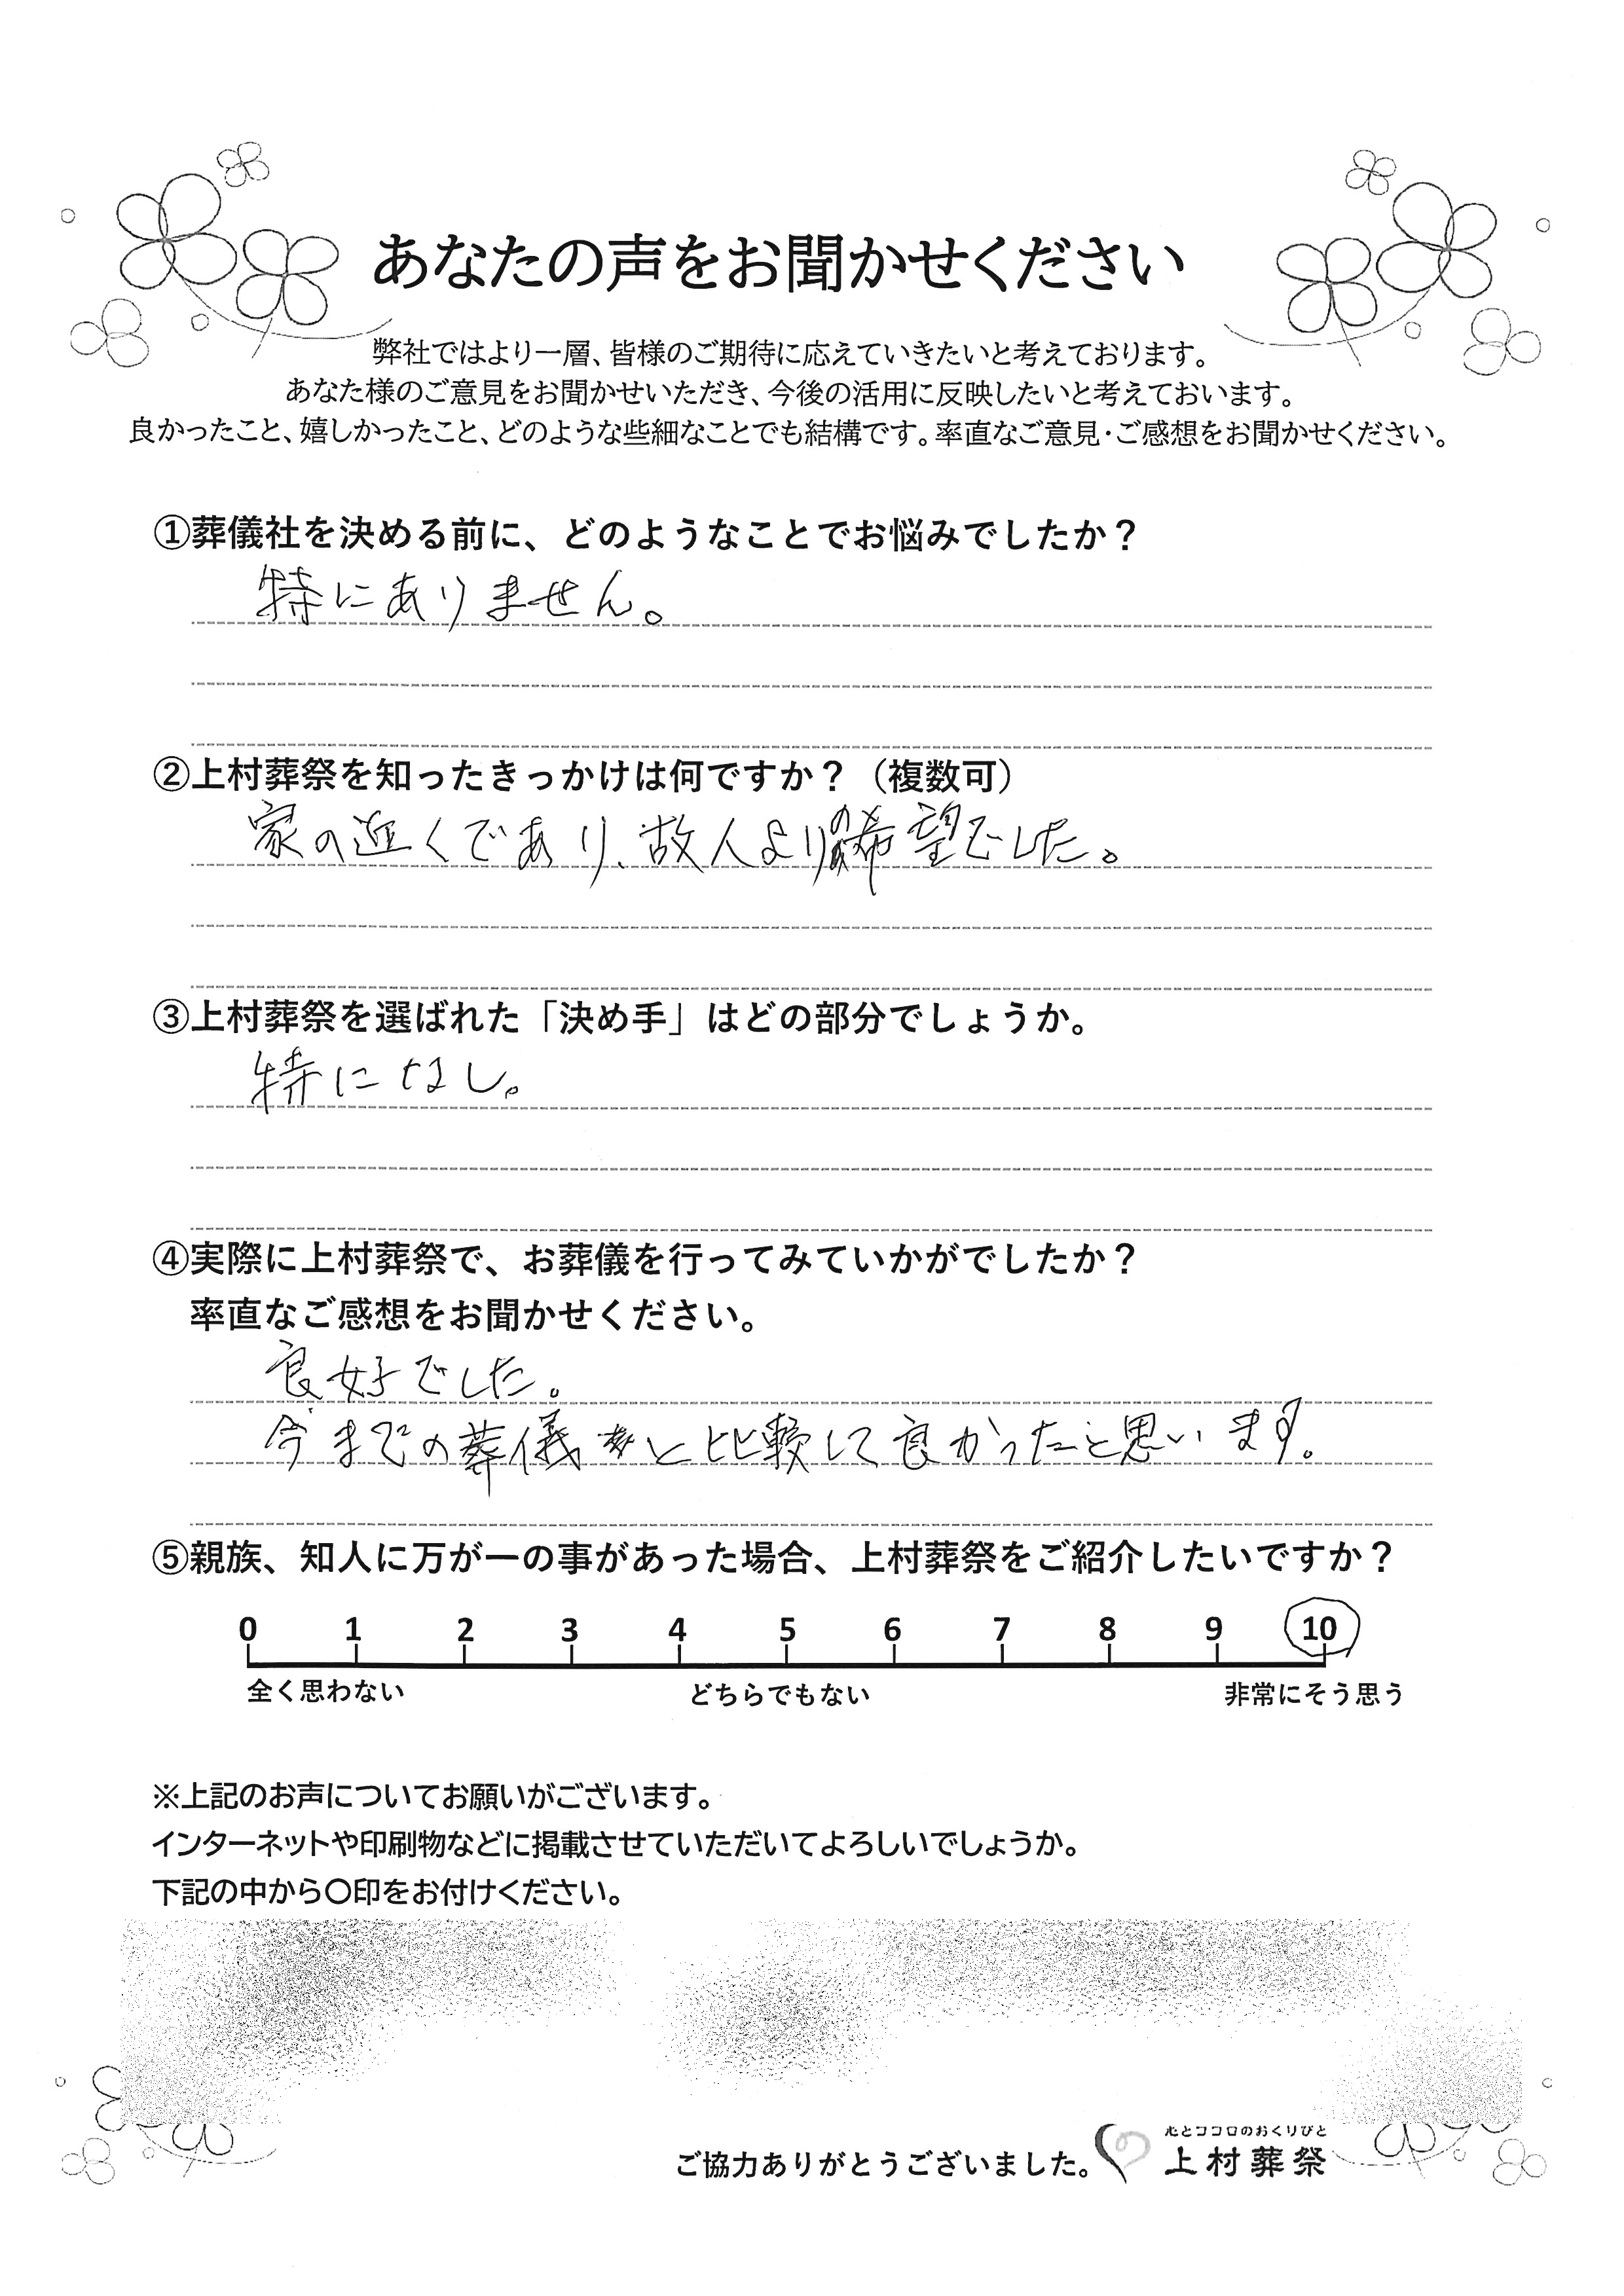 あなたの声をお聞かせください
弊社ではより一層、皆様のご期待に応えていきたいと考えております。
あなた様のご意見をお聞かせいただき、今後の活用に反映したいと考えておいます。
良かったこと、嬉しかったこと、どのような些細なことでも結構です。率直なご意見・ご感想をお聞かせください。
①葬儀社を決める前に、どのようなことでお悩みでしたか？
特にありません。
②上村葬祭を知ったきっかけは何ですか？（複数可）
家の近くであり、故人よりの希望でした。
③上村葬祭を選ばれた「決め手」はどの部分でしょうか。
特になし。
④実際に上村葬祭で、お葬儀を行ってみていかがでしたか？
率直なご感想をお聞かせください。
良好でした。
今までの葬儀と比較して良かったと思います。
⑤親族、知人に万が一の事があった場合、上村葬祭をご紹介したいですか？
0 1 2 3 4 5 6 7 8 9 10
全く思わない どちらでもない 非常にそう思う
※上記のお声についてお願いがございます。
インターネットや印刷物などに掲載させていただいてよろしいでしょうか。
下記の中から〇印をお付けください。
心とココロのおくりびと
ご協力ありがとうございました。 上村葬祭